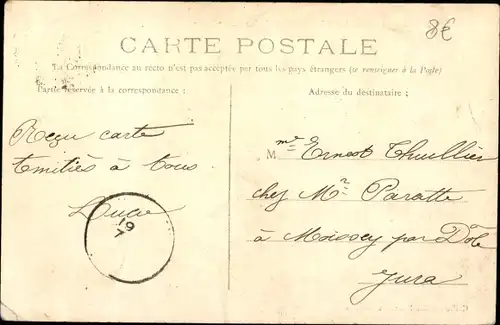 8€
CARTE POSTALE
La Correspondance au recto n'est pas acceptée par tous les pays étrangers (se renseigner à la Poste)
Partie réservée à la correspondance :
Adresse du destinataire :
Reçu carte
Amitiés à tous
19
7
Mme Ernest Thuillier
chez Mr Paratte
à Moissey par Dôle
Jura